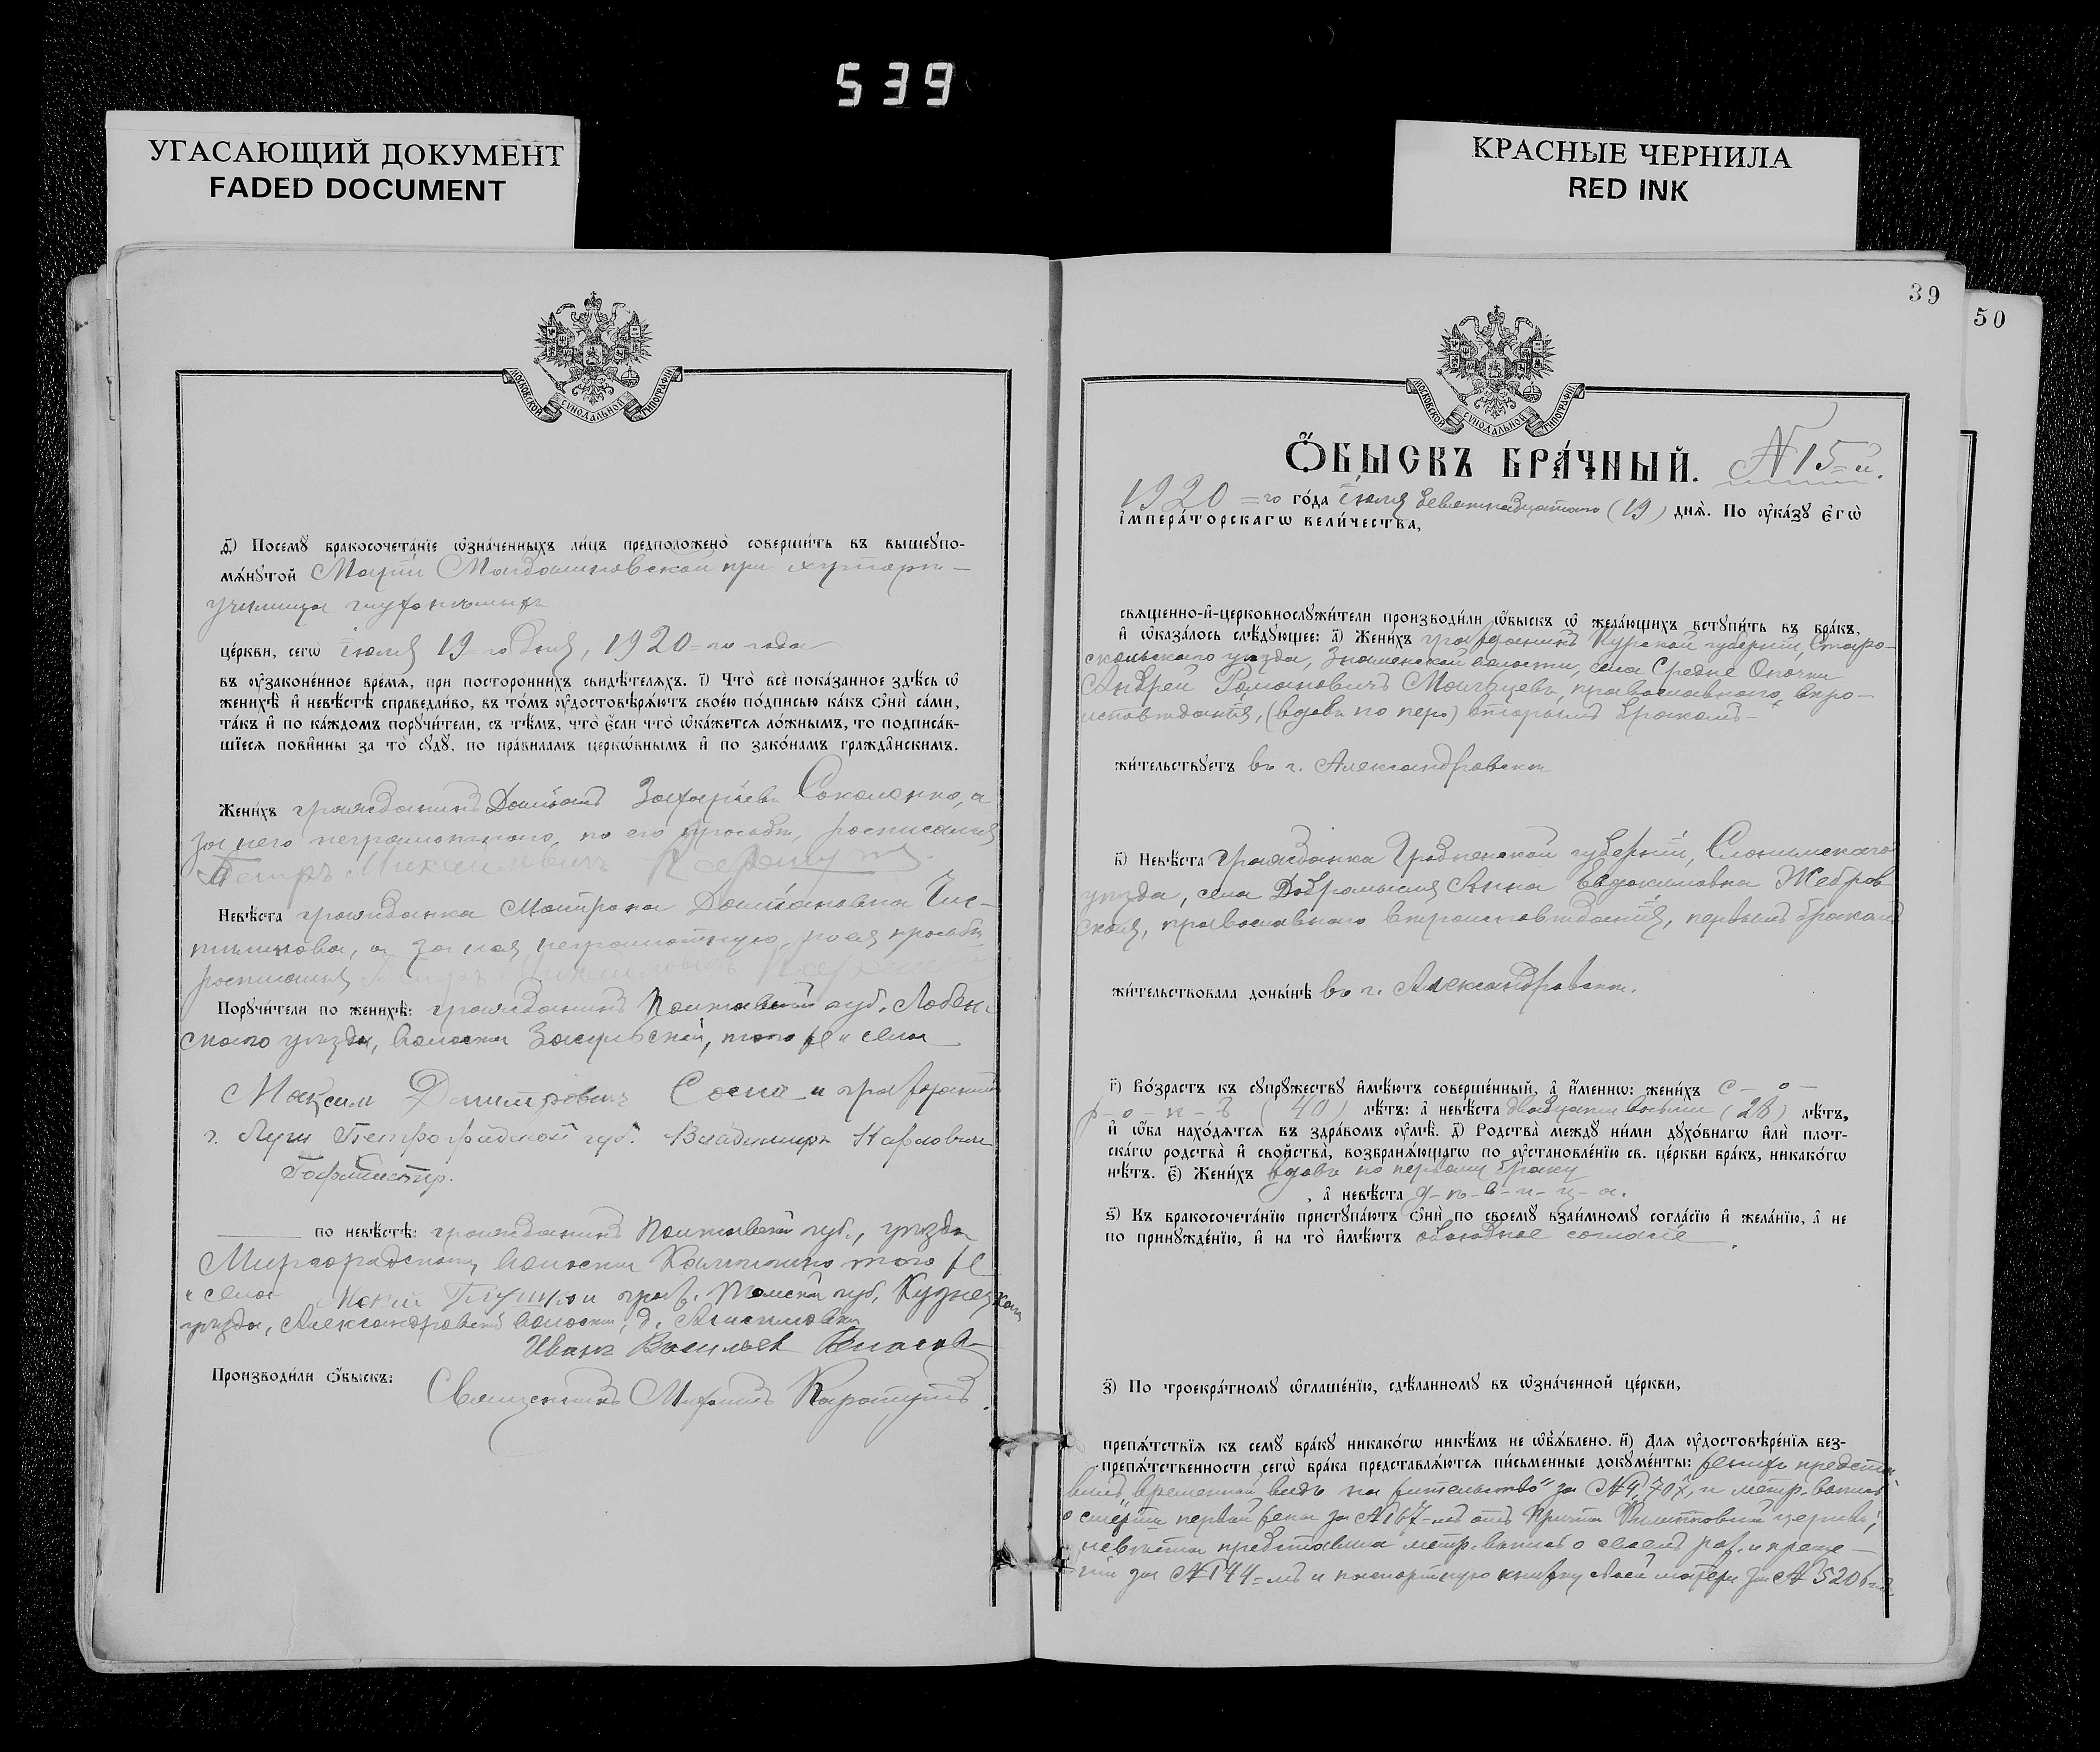 539
УГАСАЮЩИЙ ДОКУМЕНТ
FADED DOCUMENT
КРАСНЫЕ ЧЕРНИЛА
RED INK
МОСКОВСКОЙ СѴНОДАЛЬНОЙ ТИПОГРАФІИ
ѳ҃) Посемꙋ бракосочета́нїе ѡзна́ченныхъ ли́цъ предположено̀ соверши́ть въ вышеꙋпо-
мѧ́нꙋтой Маріи Магдалиновской при хуторѣ
училища глухонѣмыхъ
це́ркви, сегѡ іюля 19-го дня, 1920-го года
въ ᲂу҆зако́нéнное вре́мѧ, при посторо́ннихъ свидѣ́телѧхъ. і҃) Что̀ всѐ пока́занное здѣ́сь ѡ҆
женихѣ̀ и҆ невѣ́стѣ справедли́во, въ то́мъ ᲂу҆достовѣрѧ́ютъ свое́ю по́дписью ка́къ ѻ҆нѝ са́ми,
та́къ и҆ по ка́ждомъ порꙋчи́тели, съ тѣ́мъ, что̀ є҆́сли что̀ ѡ҆ка́жетсѧ ло́жнымъ, то подписа́в-
шїесѧ пови́нны за то̀ сꙋдꙋ̀, по пра́виламъ церко́внымъ и҆ по зако́намъ гражда́нскимъ.
Жени́хъ гражданинъ Даміанъ Захаріевъ Соколенко, а
за него неграмотнаго, по его просьбѣ, росписался
Петръ Михайловичъ
Невѣ́ста гражданка Матрона Даміановна
а за нея неграмотную, по ея просьбѣ
росписался Петръ Михайловичъ
Порꙋчи́тели по женихѣ̀: гражданинъ Полтавской губ. Лубен-
скаго уѣзда, волости Засульской, того же и села
Максим Димитровичъ Сосна и гражданинъ
г. Луги Петроградской губ. Владимиръ Карловичъ
по невѣ́стѣ: гражданинъ Полтавской губ., уѣзда
Миргородскаго, волости того же
и села Мокій и граж. Томской губ. Кузнецкаго
уѣзда, Александровской волости, д.
Иванъ Васильевъ
Производи́ли ѻ҆́быскъ: Священникъ Михаилъ
39
50
МОСКОВСКОЙ СѴНОДАЛЬНОЙ ТИПОГРАФІИ
Ѻ҆́БЫСКЪ БРА́ЧНЫЙ. № 15-й.
1920-го го́да іюля девятнадцатаго (19) днѧ̀. По ᲂу҆ка́зꙋ є҆гѡ̀
і҆мпера́торскагѡ вели́чества,
свѧщенно-и҆-церковнослꙋжи́тели производи́ли ѻ҆́быскъ ѡ҆ жела́ющихъ встꙋпи́ть въ бра́къ,
и҆ ѡ҆каза́лось слѣ́дꙋющее: а҃) Жени́хъ гражданинъ Курской губерніи, Старо-
оскольскаго уѣзда, Знаменской волости, села Средне Опочки
Андрей Романовичъ Мальцевъ, православнаго вѣро-
исповѣданія, (вдовъ по пер.) вторымъ бракомъ
жи́тельствꙋетъ въ г. Александровскѣ
в҃) Невѣ́ста гражданка Гродненской губерніи, Слонимскаго
уѣзда, села Добромысля Анна Евдокимовна Жебров-
ская, православнаго вѣроисповѣданія, первымъ бракомъ
жи́тельствовала доны́нѣ въ г. Александровскѣ.
г҃) Во́зрастъ къ сꙋпрꙋ́жествꙋ и҆мѣ́ютъ соверше́нный, а҆ и҆́меннѡ: жени́хъ с-о-
р-о-к-ъ (40) лѣ́тъ: а҆ невѣ́ста двадцати восьми (28) лѣ́тъ,
и҆ ѻ҆́ба нахо́дѧтсѧ въ здра́вомъ ᲂу҆мѣ̀. д҃) Родства̀ междꙋ ни́ми дꙋхо́внагѡ и҆лѝ плот-
ска́гѡ родства̀ и҆ свойства̀, возбранѧ́ющагѡ по ᲂу҆становле́нїю св. це́ркви бра́къ, никако́гѡ
нѣ́тъ. є҃) Жени́хъ вдовъ по первому браку
, а҆ невѣ́ста д-ѣ-в-и-ц-а.
ѕ҃) Къ бракосочета́нїю пристꙋпа́ютъ ѻ҆нѝ по своемꙋ̀ взаи́мномꙋ согла́сїю и҆ жела́нїю, а҆ не
по принꙋжде́нїю, и҆ на то̀ и҆мѣ́ютъ обоюдное согласіе.
з҃) По троекра́тномꙋ ѡ҆глаше́нїю, сдѣ́ланномꙋ въ ѡ҆зна́ченной це́ркви,
препѧ́тствїѧ къ семꙋ̀ бра́кꙋ никако́гѡ никѣ́мъ не ѡ҆б̾ѧ́влено. и҃) Длѧ̀ ᲂу҆достовѣре́нїѧ без-
препѧ́тственности сегѡ̀ бра́ка представлѧ́ютсѧ пи́сьменные докꙋме́нты: женихъ предста-
вилъ „временный видъ на жительство" за № и метр. выпись
о смерти первой жены за № 167-мъ отъ причта церкви;
невѣста представила метр. выпись о своемъ рож. и креще-
ніи за № 144-мъ и паспортную книжку своей матери за № 5206